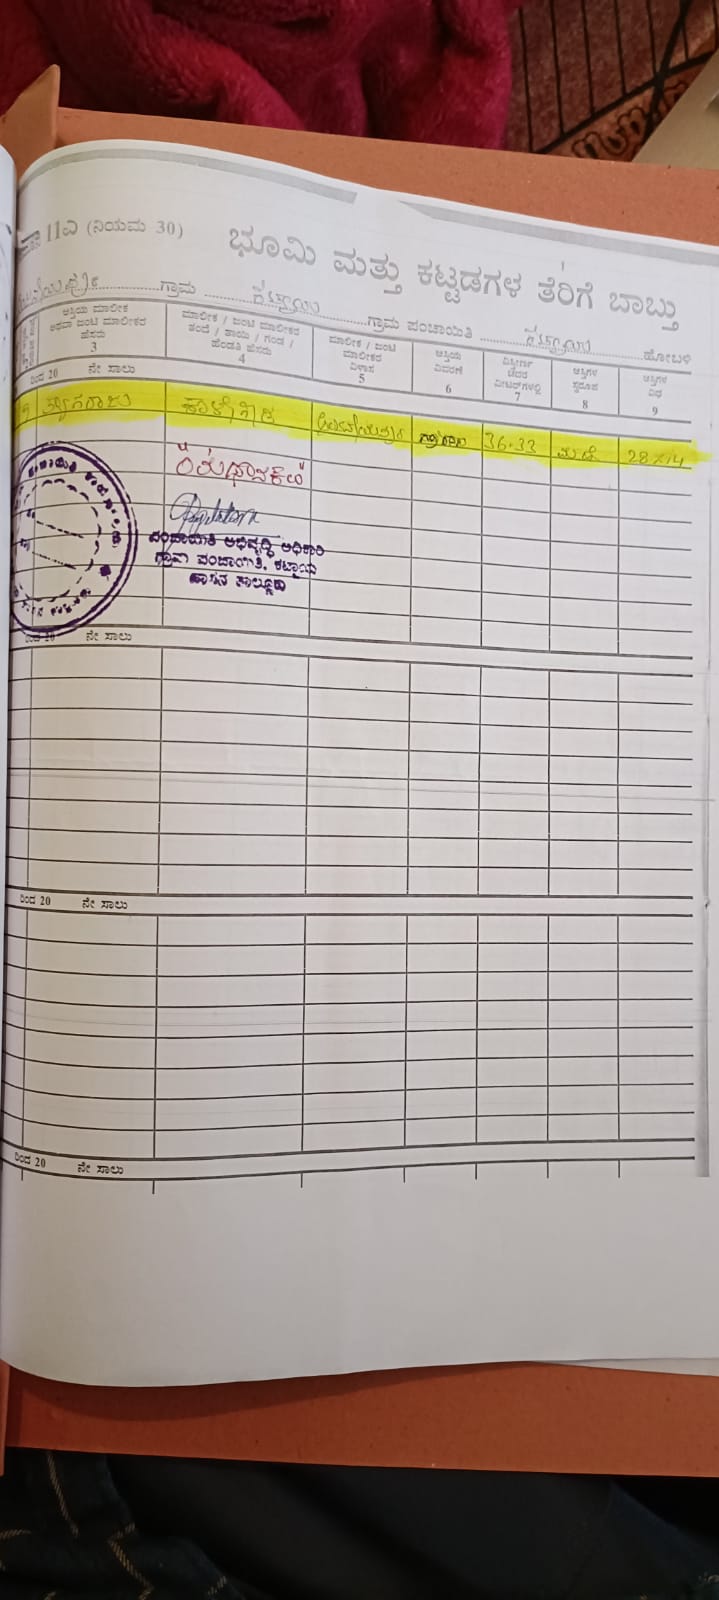 11ಎ (ನಿಯಮ 30) ಭೂಮಿ ಮತ್ತು ಕಟ್ಟಡಗಳ ತೆರಿಗೆ ಬಾಬ್ತು
ಗ್ರಾಮ ಕಟ್ಟಾಯ ಗ್ರಾಮ ಪಂಚಾಯಿತಿ ಕಟ್ಟಾಯ ಹೋಬಳಿ
ಆಸ್ತಿಯ ಮಾಲೀಕ ಅಥವಾ ಜಂಟಿ ಮಾಲೀಕರ ಹೆಸರು 3
ಮಾಲೀಕ / ಜಂಟಿ ಮಾಲೀಕರ ತಂದೆ / ತಾಯಿ / ಗಂಡ / ಹೆಂಡತಿ ಹೆಸರು 4
ಮಾಲೀಕ / ಜಂಟಿ ಮಾಲೀಕರ ವಿಳಾಸ 5
ಆಸ್ತಿಯ ವಿವರಣೆ 6
ವಿಸ್ತೀರ್ಣ ಚದರ ಮೀಟರ್‌ಗಳಲ್ಲಿ 7
ಆಸ್ತಿಗಳ ಸ್ವರೂಪ 8
ಆಸ್ತಿಗಳ ವಿಧ 9
ರಿಂದ 20 ನೇ ಸಾಲು
ತ್ಯಾಗರಾಜು ಕಾಳೇಗೌಡ 36.33 ಮನೆ 28x14
ಪಂಚಾಯಿತಿ ಅಭಿವೃದ್ಧಿ ಅಧಿಕಾರಿ
ಗ್ರಾಮ ಪಂಚಾಯಿತಿ, ಕಟ್ಟಾಯ
ಹಾಸನ ತಾಲ್ಲೂಕು
20 ನೇ ಸಾಲು
ರಿಂದ 20 ನೇ ಸಾಲು
ರಿಂದ 20 ನೇ ಸಾಲು